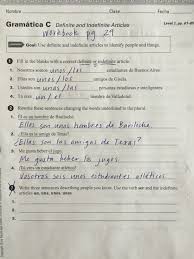 Nombre Clase Fecha
Gramática C Definite and Indefinite Articles
Workbook pg 29
Goal: Use definite and indefinite articles to identify people and things.
1 Fill in the blanks with a correct definite or indefinite article.
1. Nosotros somos unos/los estudiantes de Buenos Aires.
2. Ellas son unas/las amigas de Gisela.
3. Ustedes son unos/los
4. Tú eres un/el hombre de Valladolid.
2 Rewrite these sentences changing the words underlined to the plural.
1. Él es un hombre de Bariloche.
Ellos son unos hombres de Bariloche.
2. ¿Ella es la amiga de Texas?
¿Ellas son las amigas de Texas?
3. Me gusta beber el jugo.
Me gusta beber los jugos.
4. Tú eres un estudiante atlético.
Vosotros sois unos estudiantes atléticos
3 Write three sentences describing people you know. Use the verb ser and the indefinite
articles un, una, unos, unas.
1.
2.
3.